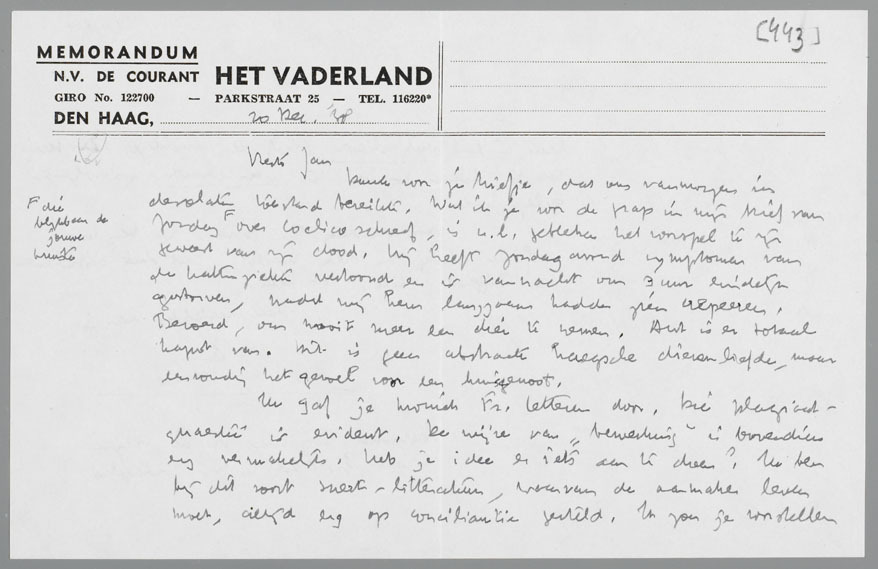 [443]
MEMORANDUM
N.V. DE COURANT HET VADERLAND
GIRO No. 122700 — PARKSTRAAT 25 — TEL. 116220*
DEN HAAG, 20 Dec. '38
Beste Jan
Dank voor je briefje, dat ons vanmorgen in
desolaten toestand bereikte. Wat ik je voor de grap in mijn brief van
Zondag F over schreef, is n.l. gebleken het voorspel te zijn
geweest van zijn dood. Hij heeft Zondagavond symptomen van
de hattenziekte vertoond en is vannacht om 3 uur eindelijk
gestorven, nadat wij hem langzaam hadden zien crepeeren.
Beroerd, om nooit meer een dier te nemen. Ant is er totaal
kapot van. Dit is geen abstracte Haagsche dierenliefde, maar
eenvoudig het gevoel voor een huisgenoot.
F die
de
jouwe
kruiste
Ik gaf je kroniek Fr. letteren door. Die plagiaat-
quaestie is evident. De wijze van „bewerking" is bovendien
erg vermakelijk. Heb je idee er iets aan te doen? Ik ben
bij dit soort snert-litteratuur, waarvan de aanmaker leven
moet, altijd erg op conciliantie gesteld. Ik zou je voorstellen